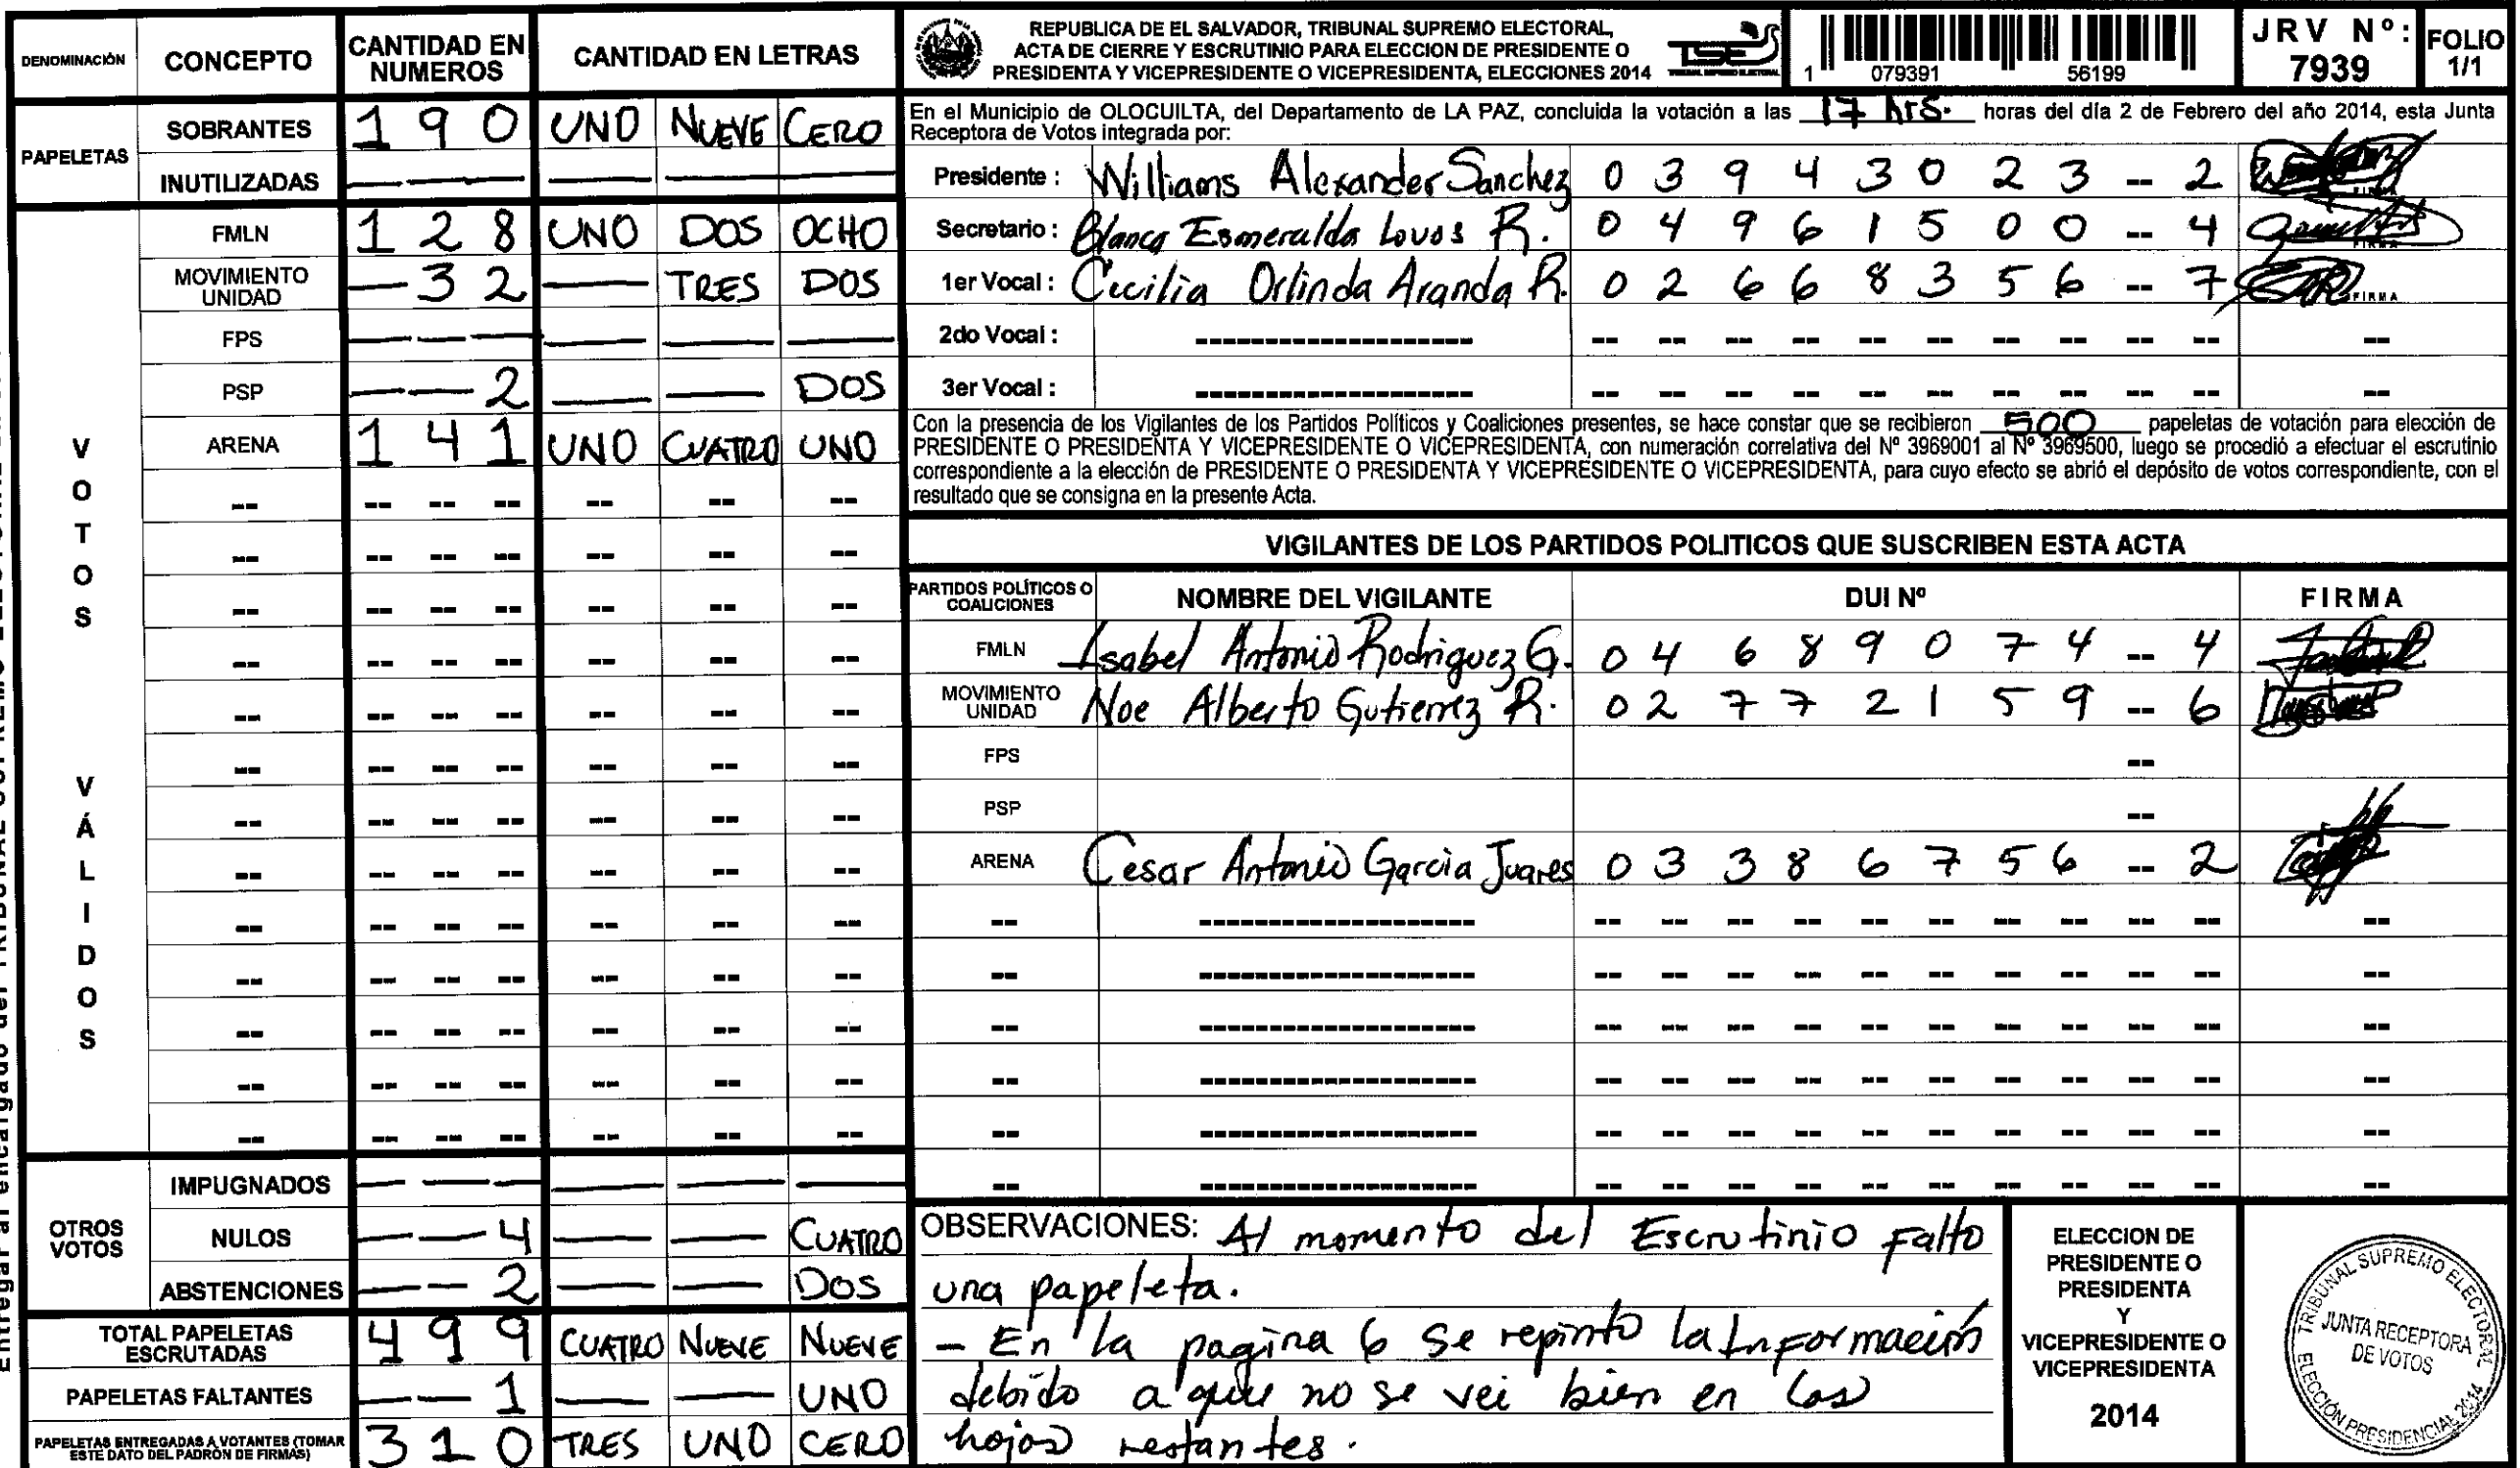 DENOMINACIÓN CONCEPTO CANTIDAD EN NUMEROS CANTIDAD EN LETRAS
PAPELETAS
SOBRANTES 1 9 0 UNO NUEVE CERO
INUTILIZADAS — — — — — —
VOTOS VÁLIDOS
FMLN 1 2 8 UNO DOS OCHO
MOVIMIENTO UNIDAD — 3 2 — TRES DOS
FPS — — — — — —
PSP — — 2 — — DOS
ARENA 1 4 1 UNO CUATRO UNO
-- -- -- -- -- -- --
-- -- -- -- -- -- --
-- -- -- -- -- -- --
-- -- -- -- -- -- --
-- -- -- -- -- -- --
-- -- -- -- -- -- --
-- -- -- -- -- -- --
-- -- -- -- -- -- --
-- -- -- -- -- -- --
-- -- -- -- -- -- --
-- -- -- -- -- -- --
-- -- -- -- -- -- --
-- -- -- -- -- -- --
OTROS VOTOS
IMPUGNADOS — — — — — —
NULOS — — 4 — — CUATRO
ABSTENCIONES — — 2 — — DOS
TOTAL PAPELETAS ESCRUTADAS 4 9 9 CUATRO NUEVE NUEVE
PAPELETAS FALTANTES — — 1 — — UNO
PAPELETAS ENTREGADAS A VOTANTES (TOMAR ESTE DATO DEL PADRÓN DE FIRMAS) 3 1 0 TRES UNO CERO
REPUBLICA DE EL SALVADOR, TRIBUNAL SUPREMO ELECTORAL,
ACTA DE CIERRE Y ESCRUTINIO PARA ELECCION DE PRESIDENTE O
PRESIDENTA Y VICEPRESIDENTE O VICEPRESIDENTA, ELECCIONES 2014
TSE
1 079391 56199
JRV Nº: 7939
FOLIO 1/1
En el Municipio de OLOCUILTA, del Departamento de LA PAZ, concluida la votación a las 17 hrs. horas del día 2 de Febrero del año 2014, esta Junta
Receptora de Votos integrada por:
Presidente : Williams Alexander Sanchez 0 3 9 4 3 0 2 3 -- 2 FIRMA
Secretario : Blanca Esmeralda Lovos R. 0 4 9 6 1 5 0 0 -- 4 FIRMA
1er Vocal : Cecilia Orlinda Aranda R. 0 2 6 6 8 3 5 6 -- 7 FIRMA
2do Vocal : ------------------ -- -- -- -- -- -- -- -- -- -- --
3er Vocal : ------------------ -- -- -- -- -- -- -- -- -- -- --
Con la presencia de los Vigilantes de los Partidos Políticos y Coaliciones presentes, se hace constar que se recibieron 500 papeletas de votación para elección de
PRESIDENTE O PRESIDENTA Y VICEPRESIDENTE O VICEPRESIDENTA, con numeración correlativa del Nº 3969001 al Nº 3969500, luego se procedió a efectuar el escrutinio
correspondiente a la elección de PRESIDENTE O PRESIDENTA Y VICEPRESIDENTE O VICEPRESIDENTA, para cuyo efecto se abrió el depósito de votos correspondiente, con el
resultado que se consigna en la presente Acta.
VIGILANTES DE LOS PARTIDOS POLITICOS QUE SUSCRIBEN ESTA ACTA
PARTIDOS POLÍTICOS O COALICIONES NOMBRE DEL VIGILANTE DUI Nº FIRMA
FMLN Isabel Antonio Rodriguez G. 0 4 6 8 9 0 7 4 -- 4
MOVIMIENTO UNIDAD Noe Alberto Gutierrez R. 0 2 7 7 2 1 5 9 -- 6
FPS --
PSP --
ARENA Cesar Antonio Garcia Juares 0 3 3 8 6 7 5 6 -- 2
-- ------------------ -- -- -- -- -- -- -- -- -- -- --
-- ------------------ -- -- -- -- -- -- -- -- -- -- --
-- ------------------ -- -- -- -- -- -- -- -- -- -- --
-- ------------------ -- -- -- -- -- -- -- -- -- -- --
-- ------------------ -- -- -- -- -- -- -- -- -- -- --
-- ------------------ -- -- -- -- -- -- -- -- -- -- --
OBSERVACIONES: Al momento del Escrutinio falto
una papeleta.
- En la pagina 6 se repinto la Información
debido a que no se vei bien en las
hojas restantes.
ELECCION DE
PRESIDENTE O
PRESIDENTA
Y
VICEPRESIDENTE O
VICEPRESIDENTA
2014
TRIBUNAL SUPREMO ELECTORAL
JUNTA RECEPTORA
DE VOTOS
ELECCIÓN PRESIDENCIAL 2014